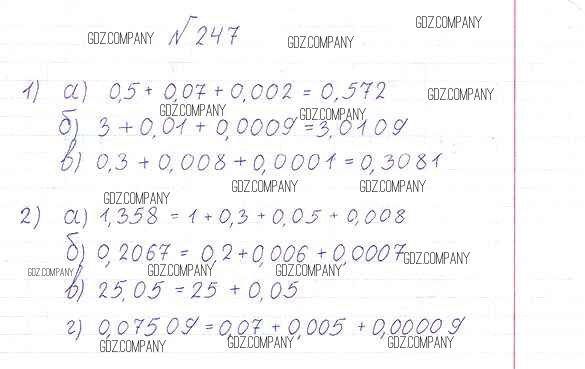 GDZ.COMPANY
№ 247
GDZ.COMPANY
GDZ.COMPANY
1) а) 0,5 + 0,07 + 0,002 = 0,572
GDZ.COMPANY
GDZ.COMPANY
GDZ.COMPANY
б) 3 + 0,01 + 0,0009 = 3,0109
в) 0,3 + 0,008 + 0,0001 = 0,3081
GDZ.COMPANY
GDZ.COMPANY
GDZ.COMPANY
2) а) 1,358 = 1 + 0,3 + 0,05 + 0,008
б) 0,2067 = 0,2 + 0,006 + 0,0007
GDZ.COMPANY
GDZ.COMPANY
GDZ.COMPANY
GDZ.COMPANY
в) 25,05 = 25 + 0,05
г) 0,07509 = 0,07 + 0,005 + 0,00009
GDZ.COMPANY
GDZ.COMPANY
GDZ.COMPANY